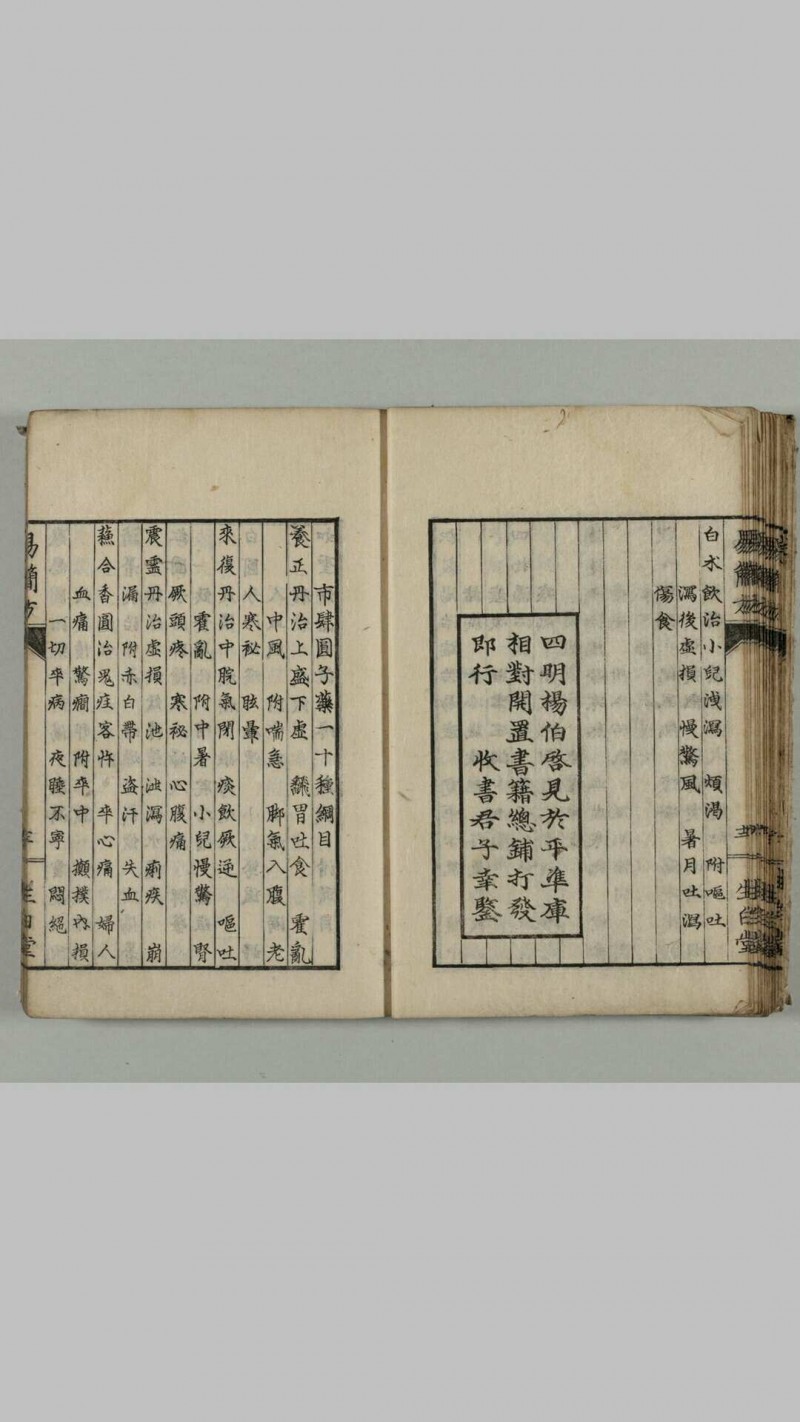 白朮飲治小兒洩瀉 煩渴 附嘔吐
瀉後虛損 慢驚風 暑月吐瀉
傷食
四明楊伯啓見於平準庫
相對開置書籍總鋪打發
即行 收書君子幸鑒
市肆圓子藥一十種綱目
養正丹治上盛下虛 飜胃吐食 霍亂
中風 附喘急 脚氣入腹 老
人寒秘 眩暈
來復丹治中脘氣閉 痰飲厥逆 嘔吐
霍亂 附中暑 小兒慢驚 腎
厥頭疼 寒秘 心腹痛
震靈丹治虛損 泄瀉 痢疾 崩
漏 附赤白帶 盜汗 失血
蘇合香圓治鬼疰客忤 卒心痛 婦人
血痛 驚癇 附卒中 攧撲內損
一切卒病 夜睡不寧 悶絕
易簡方